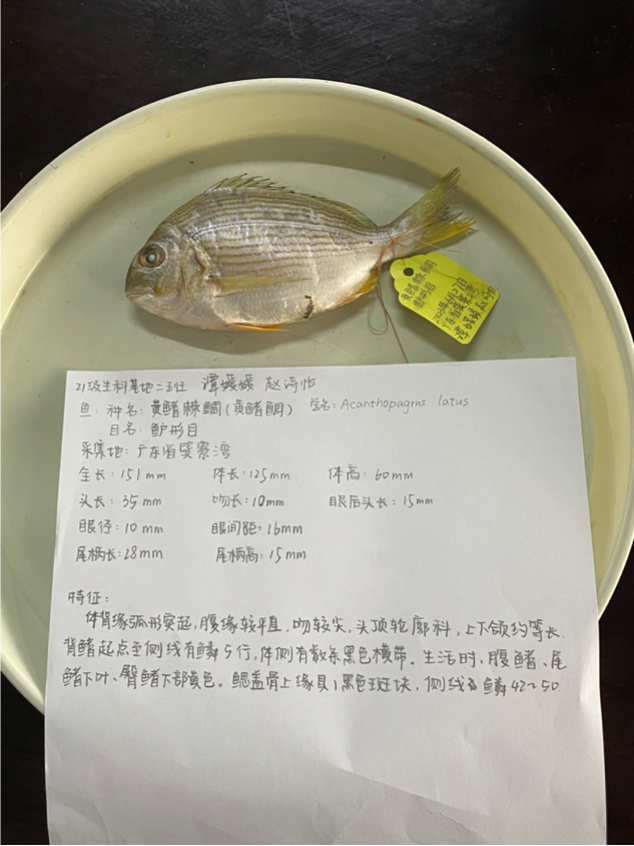 黄鳍棘鲷
鲈形目
21级生科基地二班 谭媛媛 赵诗怡
鱼: 种名: 黄鳍棘鲷(黄鳍鲷) 学名: Acanthopagrus latus
目名: 鲈形目
采集地: 广东省巽寮湾
全长: 151mm 体长: 125mm 体高: 60mm
头长: 35mm 吻长: 10mm 眼后头长: 15mm
眼径: 10mm 眼间距: 16mm
尾柄长: 28mm 尾柄高: 15mm
特征:
体背缘弧形突起, 腹缘较平直, 吻较尖, 头顶轮廓斜, 上下颌约等长.
背鳍起点至侧线有鳞5行, 体侧有数条黑色横带。生活时, 腹鳍、尾
鳍下叶、臀鳍下部黄色。鳃盖骨上缘具1黑色斑块, 侧线鳞42~50